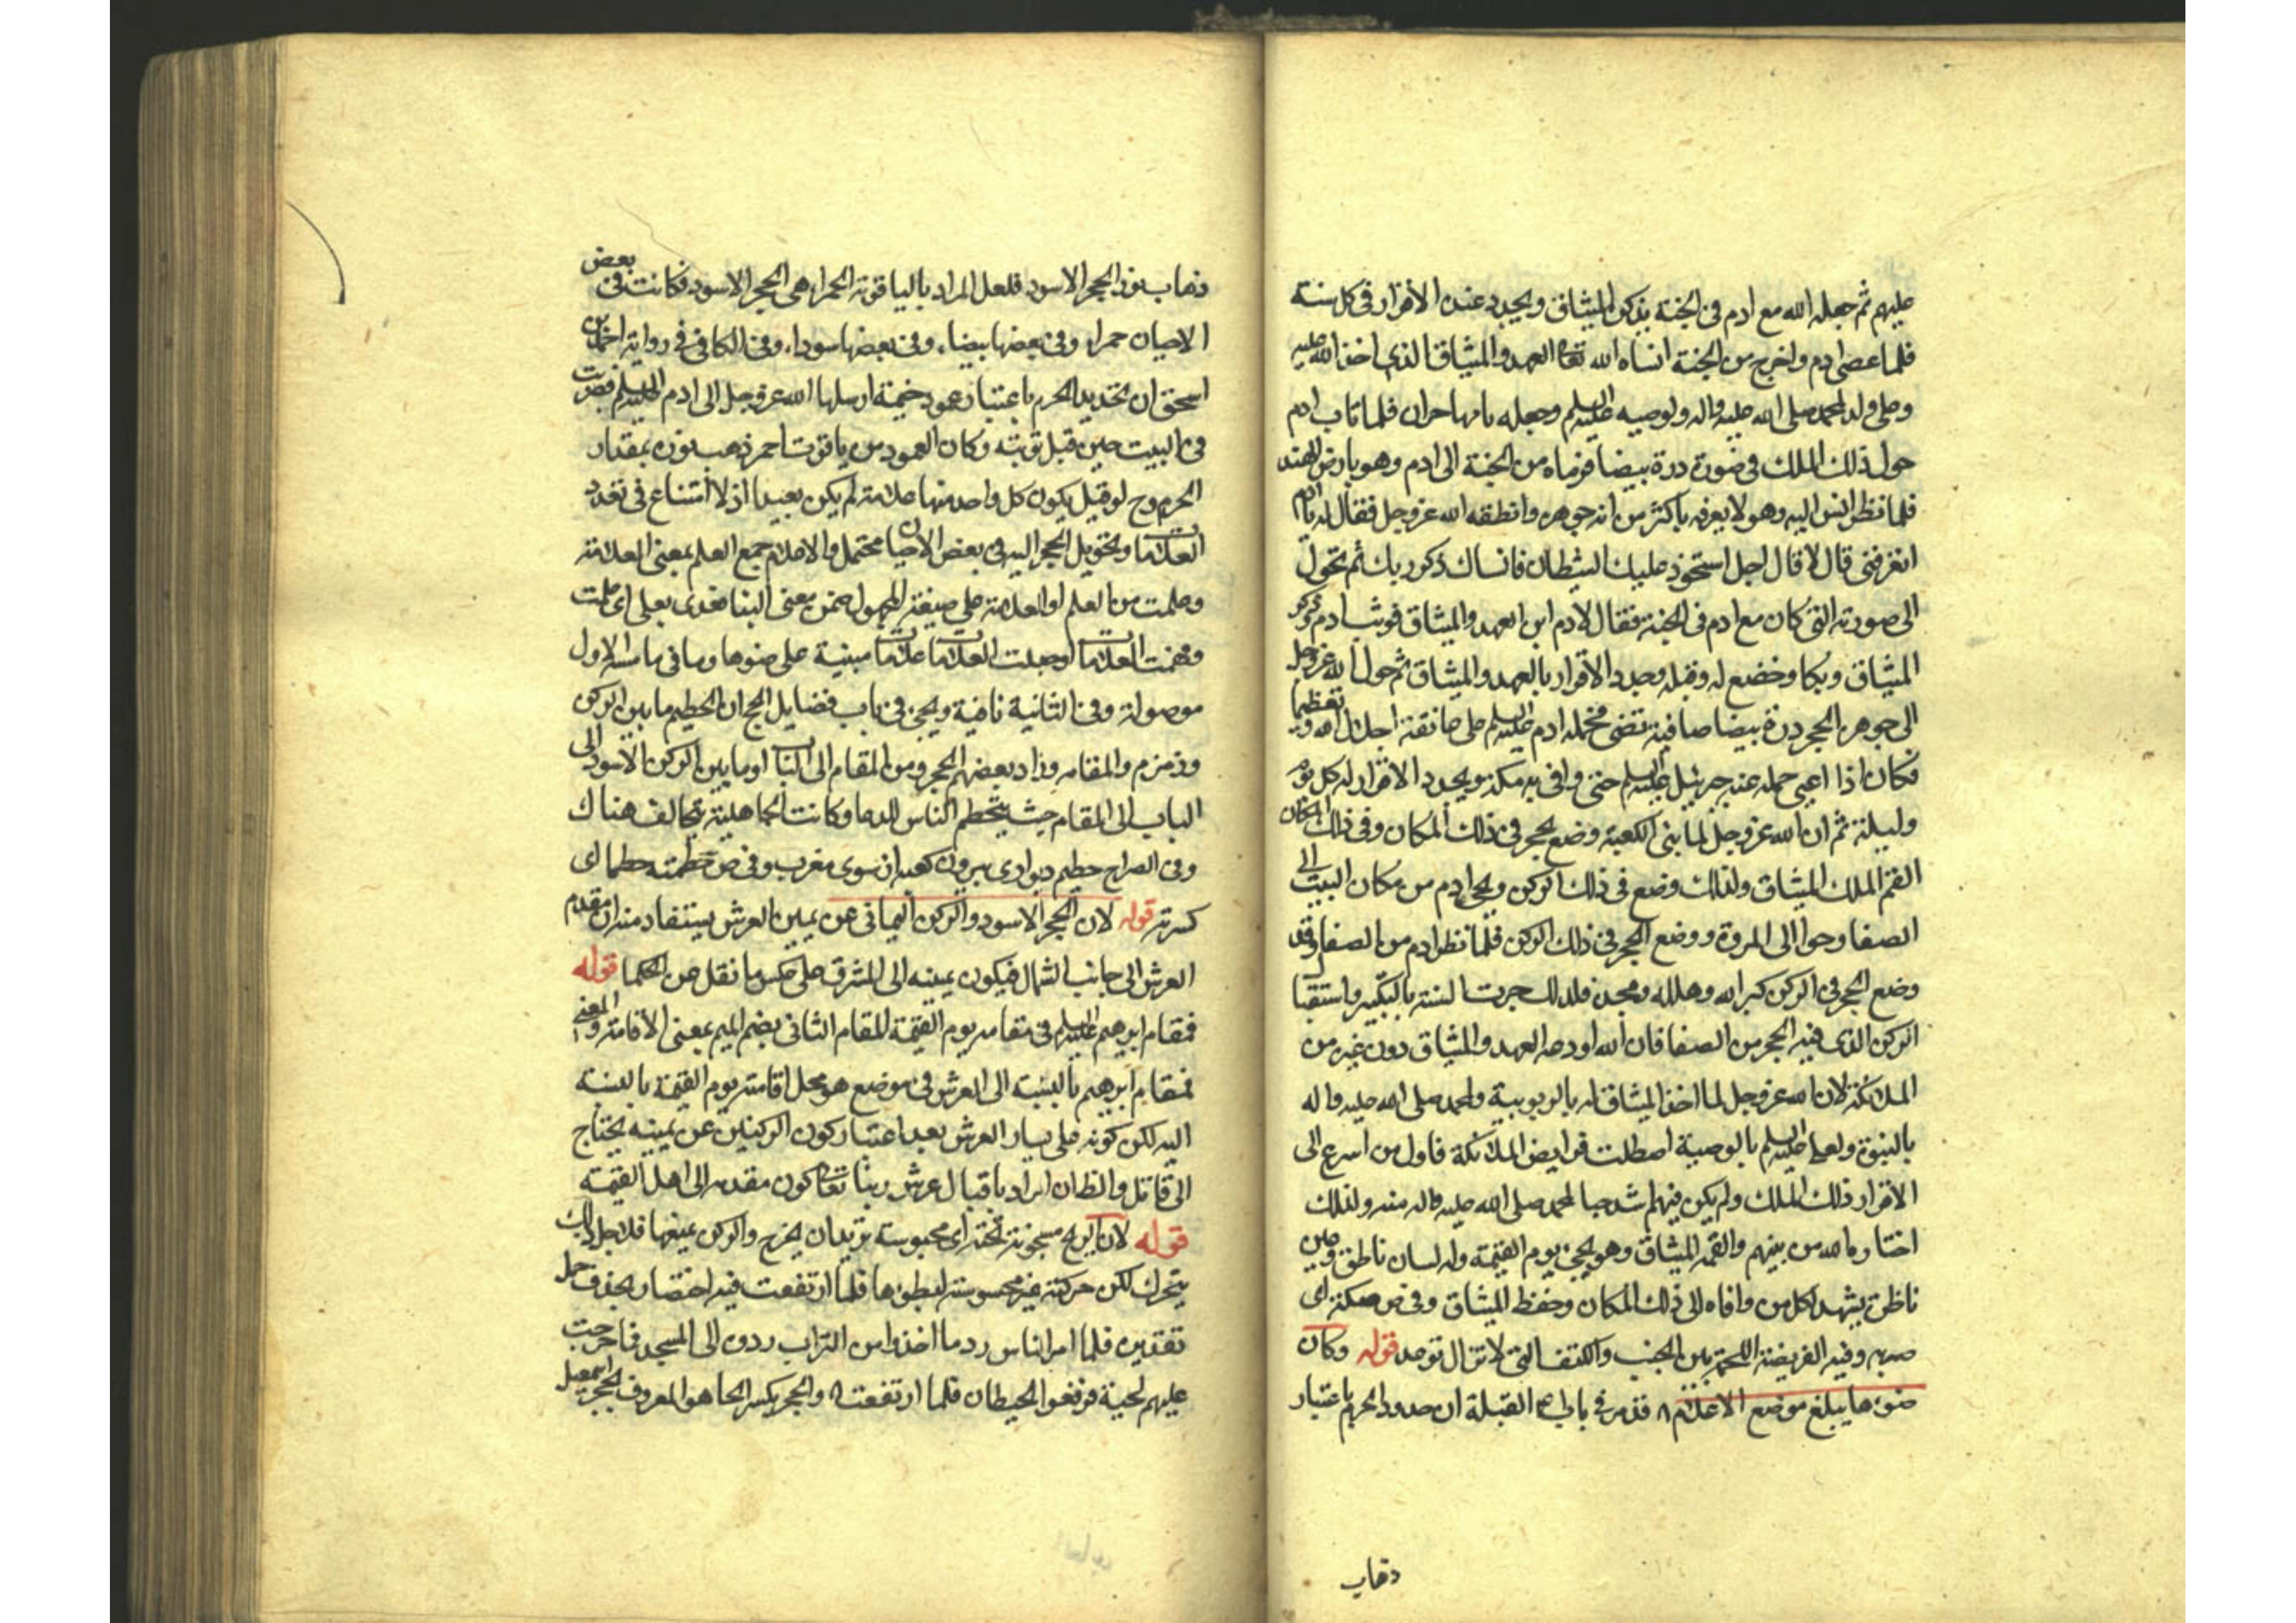 عليهم ثم جعله الله مع ادم فى الجنة يذكره الميثاق ويجدد عنده الاقرار فى كل سنة
فلما عصى ادم واخرج من الجنة انساه الله تعا العهد والميثاق الذى اخذ الله عليه
وعلى ولده لمحمد صلى الله عليه واله ولوصيه عليه السلم وجعله تايها حيران فلما تاب ادم
حول ذلك الملك فى صورة درة بيضا فرماه من الجنة الى ادم وهو بارض الهند
فلما نظر انس اليه وهو لا يعرفه باكثر من انه جوهره وانطقه الله عز وجل فقال له يا ادم
اتعرفنى قال لا قال اجل استحوذ عليك الشيطان فانساك ذكر ربك ثم تحول
الى صورته التى كان مع ادم فى الجنة فقال لادم اين العهد والميثاق فوثب ادم وذكر
الميثاق وبكا وخضع له وقبله وجدد الاقرار بالعهد والميثاق ثم حوله الله عز وجل
الى جوهر الحجر درة بيضا صافية تضئ فحمله ادم عليه السلم على عاتقه اجلالا له وتعظيما
فكان اذا اعيى حمله عنه جبرئيل عليه السلم حتى وافى به مكة ويجدد الاقرار له كل يوم
وليلة ثم ان الله عز وجل لما بنى الكعبة وضع الحجر فى ذلك المكان وفى ذلك المكان
القم الملك الميثاق ولذلك وضع فى ذلك الركن ونحى ادم من مكان البيت الى
الصفا وحوا الى المروة ووضع الحجر فى ذلك الركن فلما نظر ادم من الصفا وقد
وضع الحجر فى الركن كبر الله وهلله ومجده فلذلك جرت السنة بالتكبير واستقبا
الركن الذى فيه الحجر من الصفا فان الله اودعه العهد والميثاق دون غيره من
الملائكة لان الله عز وجل لما اخذ الميثاق له بالربوبية ولمحمد صلى الله عليه واله
بالنبوة ولعلى عليه السلم بالوصية اصطكت فرايض الملائكة فاول من اسرع الى
الاقرار ذلك الملك ولم يكن فيهم اشد حبا لمحمد صلى الله عليه واله منه ولذلك
اختاره الله من بينهم والقمه الميثاق وهو يجئ يوم القيمة وله لسان ناطق وعين
ناظرة يشهد لكل من وافاه الى ذلك المكان وحفظ الميثاق وفى ص صكه اى
ضربه وفيه الفريضة اللحمة بين الجنب والكتف التى لا تزال ترعد قوله وكان
ضوءها يبلغ موضع الاعلام قد مر فى باب القبلة ان حدود الحرم باعتبار
ذهاب
ذهاب نور الحجر الاسود فلعل المراد بالياقوتة الحمراء هى الحجر الاسود فكانت فى بعض
الاحيان حمراء وفى بعضها بيضاء وفى بعضها سوداء وفى الكافى فى رواية احمد بن
اسحق ان تحديد الحرم باعتبار عمود خيمة ارسلها الله عز وجل الى ادم عليه السلم فضربت
فى البيت حين قبل توبته وكان العمود من ياقوت احمر ذهب نوره بمقدار
الحرم وح لو قيل يكون كل واحد منها علامة لم يكن بعيدا اذ لا امتناع فى تعدد
العلامات وتحويل الحجر اليه فى بعض الاحيان محتمل والاعلام جمع العلم بمعنى العلامة
وعلمت من العلم او العلامة على صيغة المجهول ضمن معنى البنا فعدى بعلى اى علمت
وضمنت العلامات او جعلت العلامات علامات مبنية على ضوءها وما فى ما مسه الاول
موصولة وفى الثانية نافية ويجئ فى باب فضايل الحج ان الحطيم ما بين الركن
وزمزم والمقام وزاد بعضهم الحجر ومن المقام الى الباب او ما بين الركن الاسود الى
الباب الى المقام حيث يتحطم الناس للدعا وكانت الجاهلية تحالف هناك
وفى الصراح حطيم ديوارى بيرون كعبه ازسوى مغرب وفى ص حطمته حطما اى
كسرته قوله لان الحجر الاسود والركن اليمانى عن يمين العرش يستفاد منه ان مقدم
العرش الى جانب الشمال فيكون يمينه الى المشرق على عكس ما نقل عن الحكما قوله
فمقام ابرهيم عليه السلم فى مقامه يوم القيمة المقام الثانى بضم الميم بمعنى الاقامة والمعنى
فمقام ابرهيم بالنسبة الى العرش فى موضع هو محل اقامته يوم القيمة بالنسبة
اليه لكن كونه على يسار العرش بعد اعتبار كون الركنين عن يمينه يحتاج
الى قائل والظان المراد باقبال عرش ربنا تعا كون مقدمه الى اهل القيمة
قوله لان الريح مسجونة تحته اى محبوسة تريد ان يخرج والركن يمنعها فلاجل ذلك
يتحرك لكن حركته غير محسوسة لبطؤها فلما ارتفعت فيه اختصار بحذف جمل
تقديره فلما امر الناس رد ما اخذوا من التراب ردوه الى المسجد فما خرجت
عليهم لحية فرفعوا الحيطان فلما ارتفعت والحجر بكسر الحا هو المعروف بحجر اسمعيل